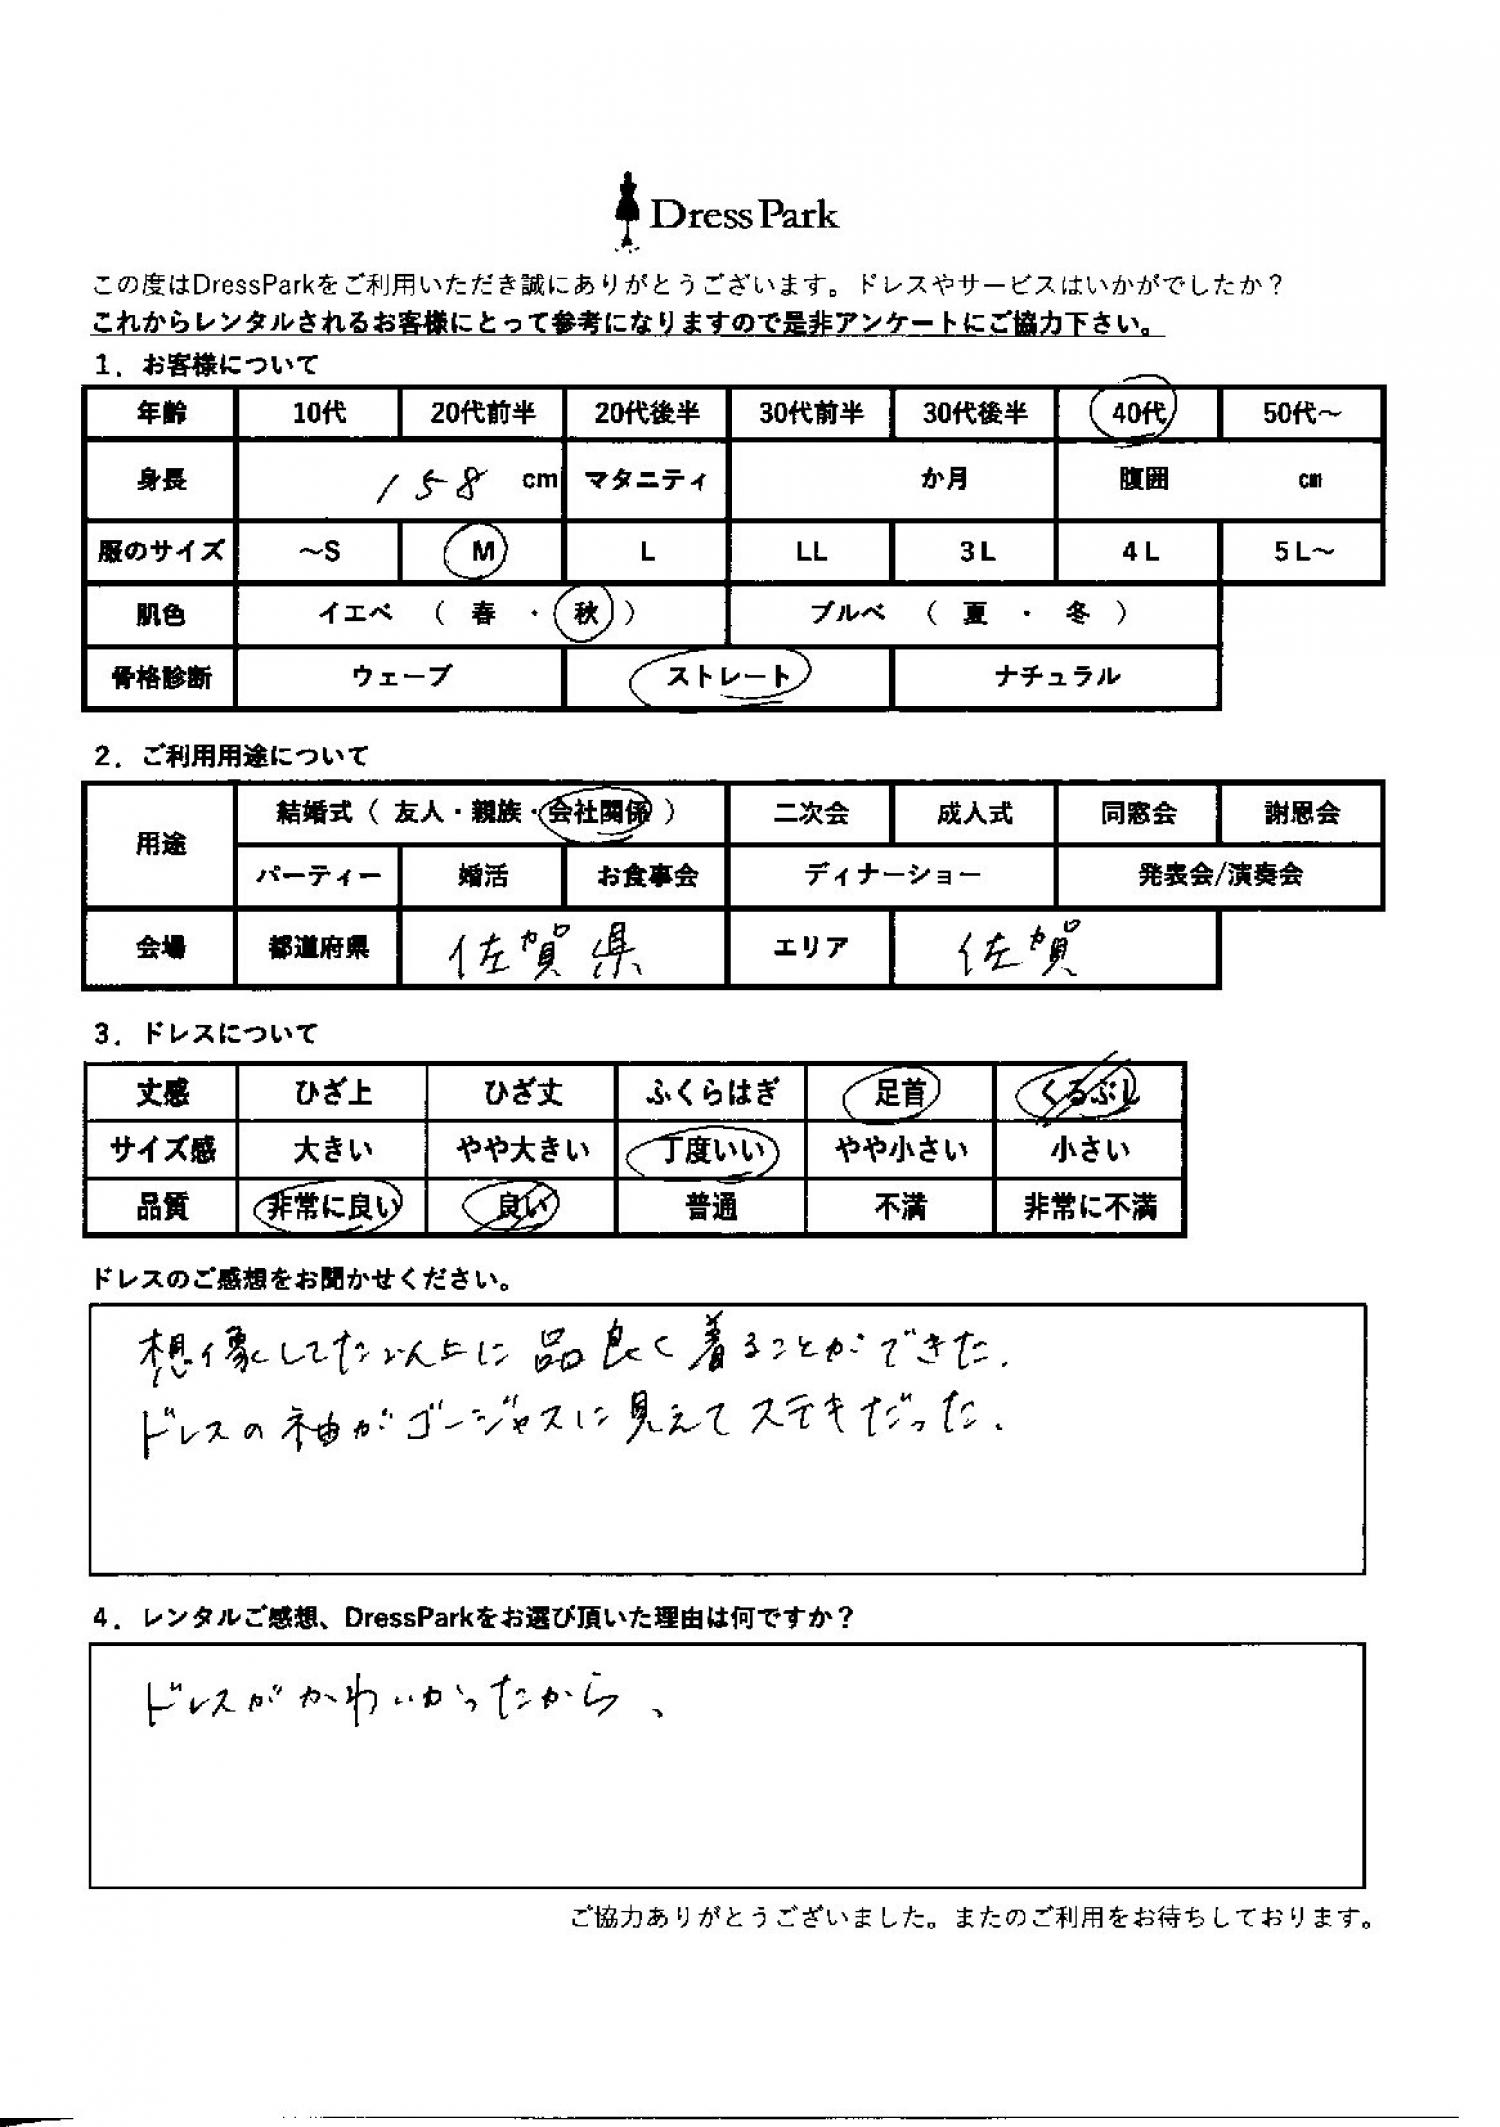 Dress Park
この度はDressParkをご利用いただき誠にありがとうございます。ドレスやサービスはいかがでしたか？
これからレンタルされるお客様にとって参考になりますので是非アンケートにご協力下さい。
1．お客様について
年齢 10代 20代前半 20代後半 30代前半 30代後半 40代 50代～
身長 158 cm マタニティ か月 腹囲 cm
服のサイズ ～S M L LL 3L 4L 5L～
肌色 イエベ （ 春 ・ 秋 ） ブルベ （ 夏 ・ 冬 ）
骨格診断 ウェーブ ストレート ナチュラル
2．ご利用用途について
用途 結婚式（ 友人・親族・会社関係 ） 二次会 成人式 同窓会 謝恩会
パーティー 婚活 お食事会 ディナーショー 発表会/演奏会
会場 都道府県 佐賀県 エリア 佐賀
3．ドレスについて
丈感 ひざ上 ひざ丈 ふくらはぎ 足首 くるぶし
サイズ感 大きい やや大きい 丁度いい やや小さい 小さい
品質 非常に良い 良い 普通 不満 非常に不満
ドレスのご感想をお聞かせください。
想像してた以上に品良く着ることができた.
ドレスの袖がゴージャスに見えてステキだった.
4．レンタルご感想、DressParkをお選び頂いた理由は何ですか？
ドレスがかわいかったから、
ご協力ありがとうございました。またのご利用をお待ちしております。